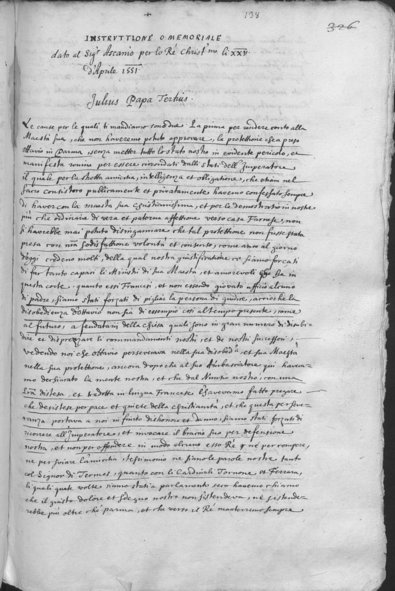 198
326
INSTRUTTIONE O MEMORIALE
dato al Sigr Ascanio per lo Re Christmo li XXV
d'Aprile 1551
Julius Papa Tertius.
Le cause per le quali ti mandiamo sono due. La prima per render conto alla
Maestà sua, che non havevamo potuto approvare, la protettione ch'ha preso
Ottavio in Parma, senza metter tutto lo stato nostro in evidente pericolo, et
manifesta ruina per essere circondati dalli stati dell'Imperatore,
il quale per la stretta amicitia, intelligenza et obligatione, che
sacro Concistoro publicamente et privatamente havemo confessato sempre
di haver con la maestà sua Christianissima, et per le demostrationi nostre
più che ordinarie di vera et paterna affettione verso casa Farnese, non
si havrebbe mai potuto disingannare che tal protettione non fusse stata
presa con non sodisfattione volontà et consenso, come anco al giorno
d'hoggi credono molti, della qual nostra giustificatione
di far tanto capaci li Ministri di sua Maestà, et amorevoli
questa corte, quanto essi Francesi, et non essendo giovato officio alcuno
di padre, siamo stati forzati di pigliar la persona di giudice, accioche la
disobedienza d'Ottavio non sia di essempio così al tempo presente, come
al futuro, a feudatarij della Chiesa quali sono in gran numero di disubi-
dire et disprezzare li commandamenti nostri, et de nostri successori,
vedendo noi che Ottavio perseverava nella sua disobedza et sua Maestà
nella sua protettione, ancora dopo che al suo Ambasciatore qui havem-
mo dechiarato la mente nostra, et che dal Nuntio nostro, con una
distesa, et tradotta in lingua Francese l'havevamo fatto pregare
che desistesse per pace et quiete della Christianità, et che questa perseve-
ranza portava a noi infinito dishonore et danno, siamo stati forzati di
ricorrere all'Imperatore, et invocare il braccio suo per defensione
nostra, et non per offendere in modo alcuno esso Re, né per rompere,
ne per finire l'amicitia, testimonio ne siano le parole nostre tanto
col Signor di Termes, quanto con li Cardinali Tornone, et Ferrara,
li quali quate volte siamo stati a parlamento seco havemo chiamo
che il giusto dolore et sdegno nostro non s'estendeva, né s'estende-
rebbe più oltre che Parma, et che verso il Re manterremo sempre